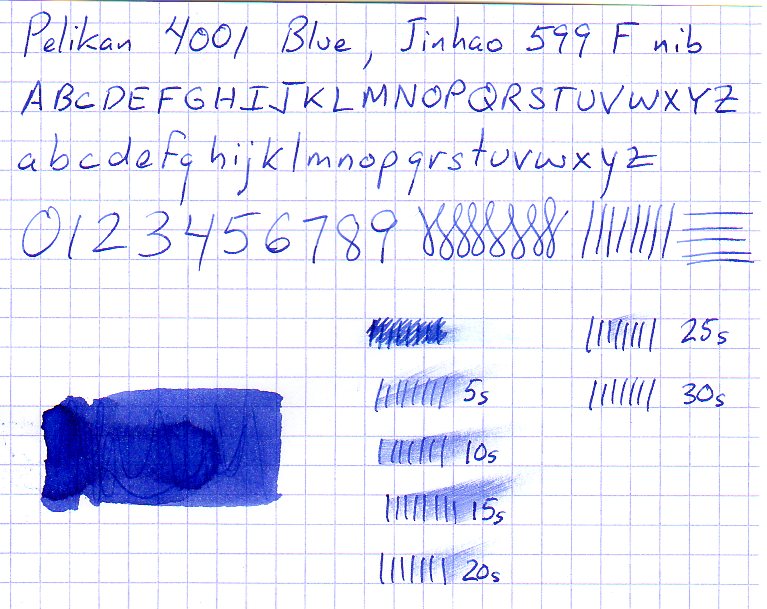 Pelikan 4001 Blue, Jinhao 599 F nib
ABCDEFGHIJKLMNOPQRSTUVWXYZ
abcdefghijklmnopqrstuvwxyz
0123456789
5s
10s
15s
20s
25s
30s